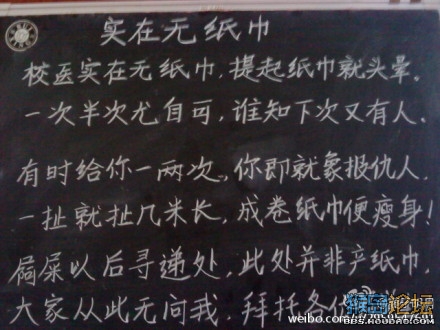 实在无纸巾
校医实在无纸巾,提起纸巾就头晕。
一次半次尤自可,谁知下次又有人。
有时给你一两次,你即就象报仇人,
一扯就扯几米长,成卷纸巾便瘦身!
屙屎以后寻递处,此处并非产纸巾,
大家从此无问我,拜托各位
weibo.com/
论坛